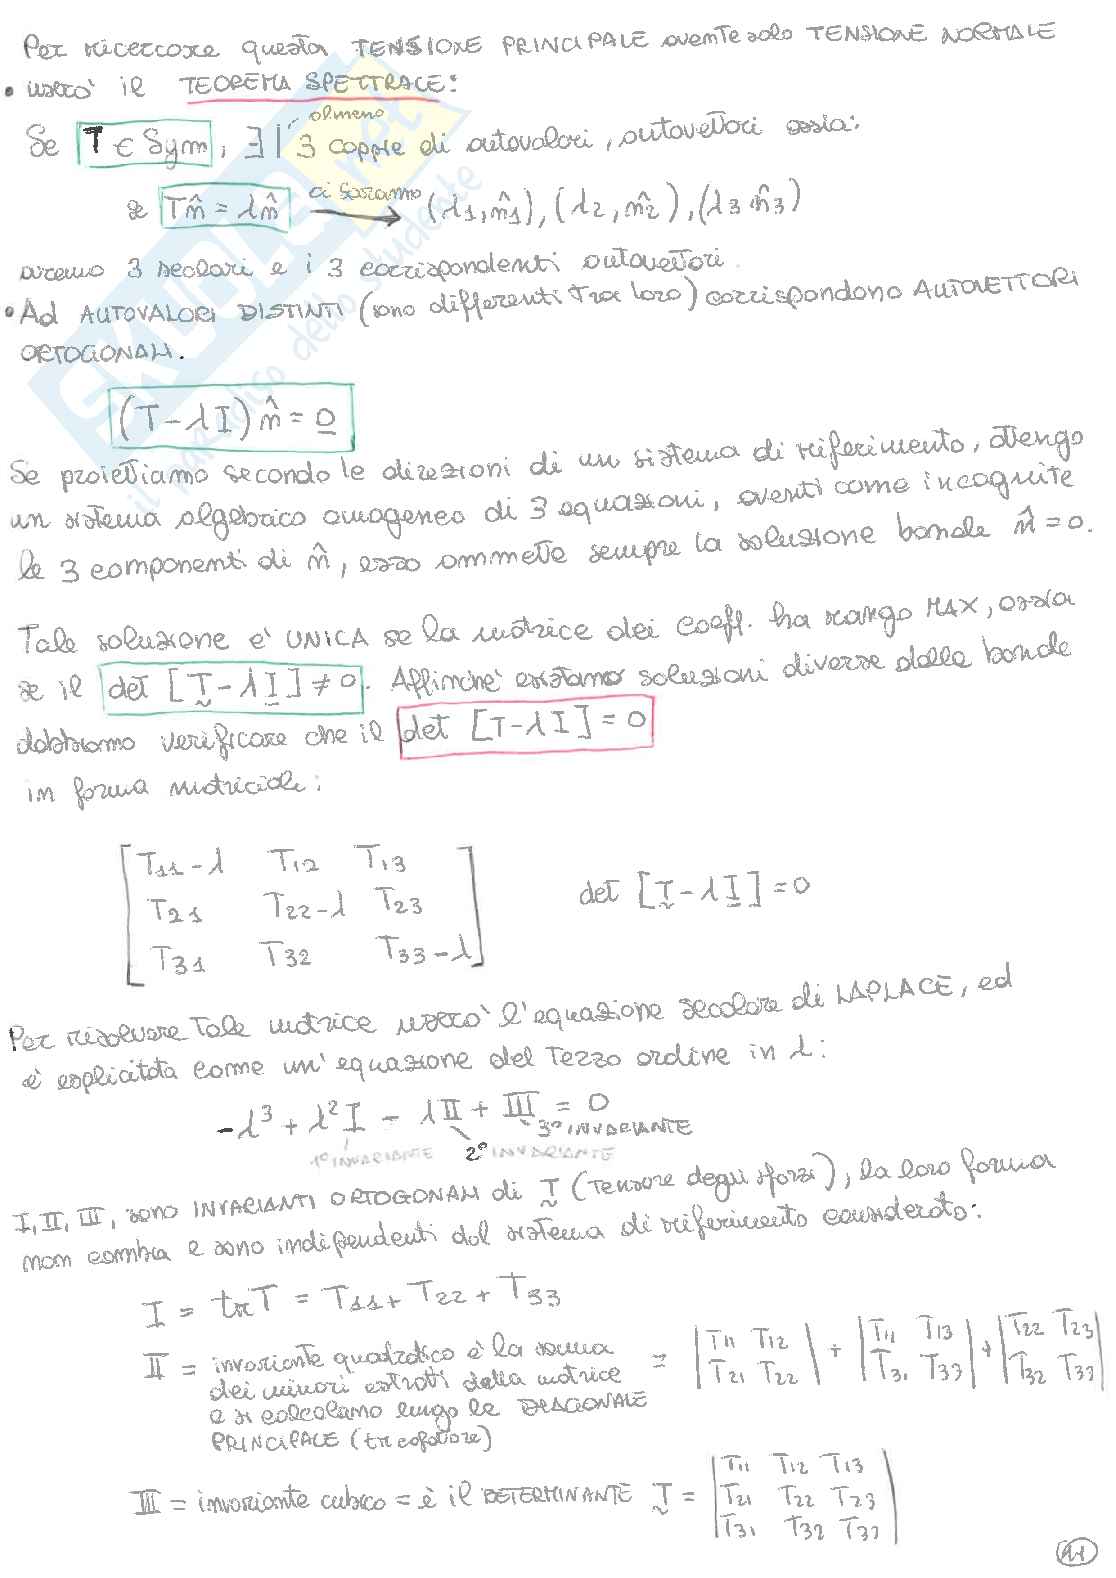 Per ricercare questa TENSIONE PRINCIPALE avente solo TENSIONE NORMALE
• userò il TEOREMA SPETTRALE:
almeno
Se T ∈ Sym, ∃| 3 coppie di autovalori, autovettori ossia:
se Tn̂ = λn̂ ci saranno → (λ1, n̂1), (λ2, n̂2), (λ3 n̂3)
avremo 3 scalari e i 3 corrispondenti autovettori.
• Ad AUTOVALORI DISTINTI (sono differenti tra loro) corrispondono AUTOVETTORI
ORTOGONALI.
(T - λI) n̂ = 0
Se proiettiamo secondo le direzioni di un sistema di riferimento, ottengo
un sistema algebrico omogeneo di 3 equazioni, aventi come incognite
le 3 componenti di n̂, esso ammette sempre la soluzione banale n̂ = 0.
Tale soluzione è UNICA se la matrice dei coeff. ha rango MAX, ossia
se il det [T - λI] ≠ 0. Affinché esistano soluzioni diverse dalla banale
dobbiamo verificare che il det [T - λI] = 0
in forma matriciale:
T11 - λ T12 T13
T21 T22 - λ T23 det [T - λI] = 0
T31 T32 T33 - λ
Per risolvere tale matrice userò l'equazione secolare di LAPLACE, ed
è esplicitata come un'equazione del terzo ordine in λ:
-λ³ + λ² I - λ II + III = 0
1° INVARIANTE 2° INVARIANTE 3° INVARIANTE
I, II, III, sono INVARIANTI ORTOGONALI di T (tensore degli sforzi), la loro forma
non cambia e sono indipendenti dal sistema di riferimento considerato:
I = trT = T11 + T22 + T33
II = invariante quadratico è la somma = |T11 T12| + |T11 T13| + |T22 T23|
dei minori estratti dalla matrice |T21 T22| |T31 T33| |T32 T33|
e si calcolano lungo la DIAGONALE
PRINCIPALE (tr cofattore)
III = invariante cubico = è il DETERMINANTE T = |T11 T12 T13|
|T21 T22 T23|
|T31 T32 T33|
SKUOLA.net
il paradiso dello studente